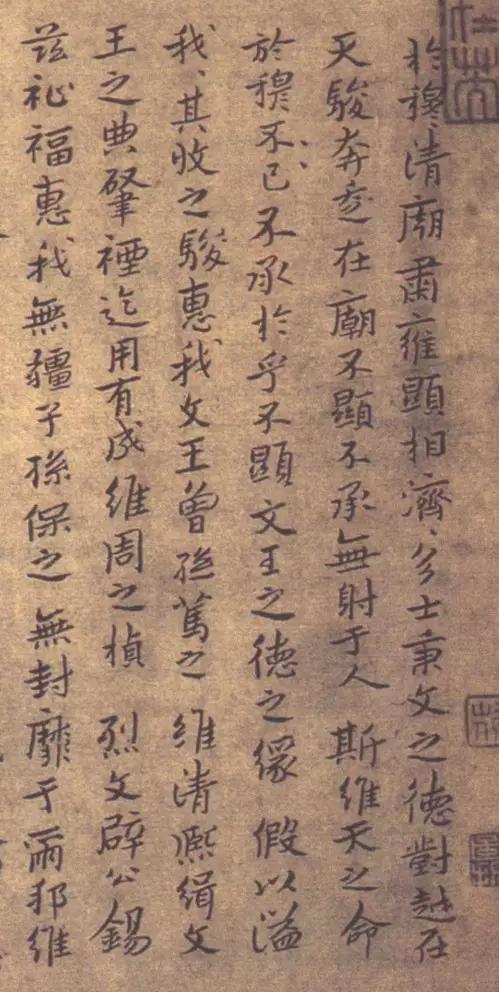 於穆〻清廟肅雍顯相濟〻多士秉文之德對越在
天駿奔走在廟不顯不承無射于人 斯維天之命
於穆不已不承於乎不顯文王之德之 假以溢
我〻其收之駿惠我文王曾孫篤之 維清熙緝文
王之典肇禋迄用有成維周之楨 烈文辟公錫
茲祉福惠我無疆子孫保之 無封靡于爾邦維